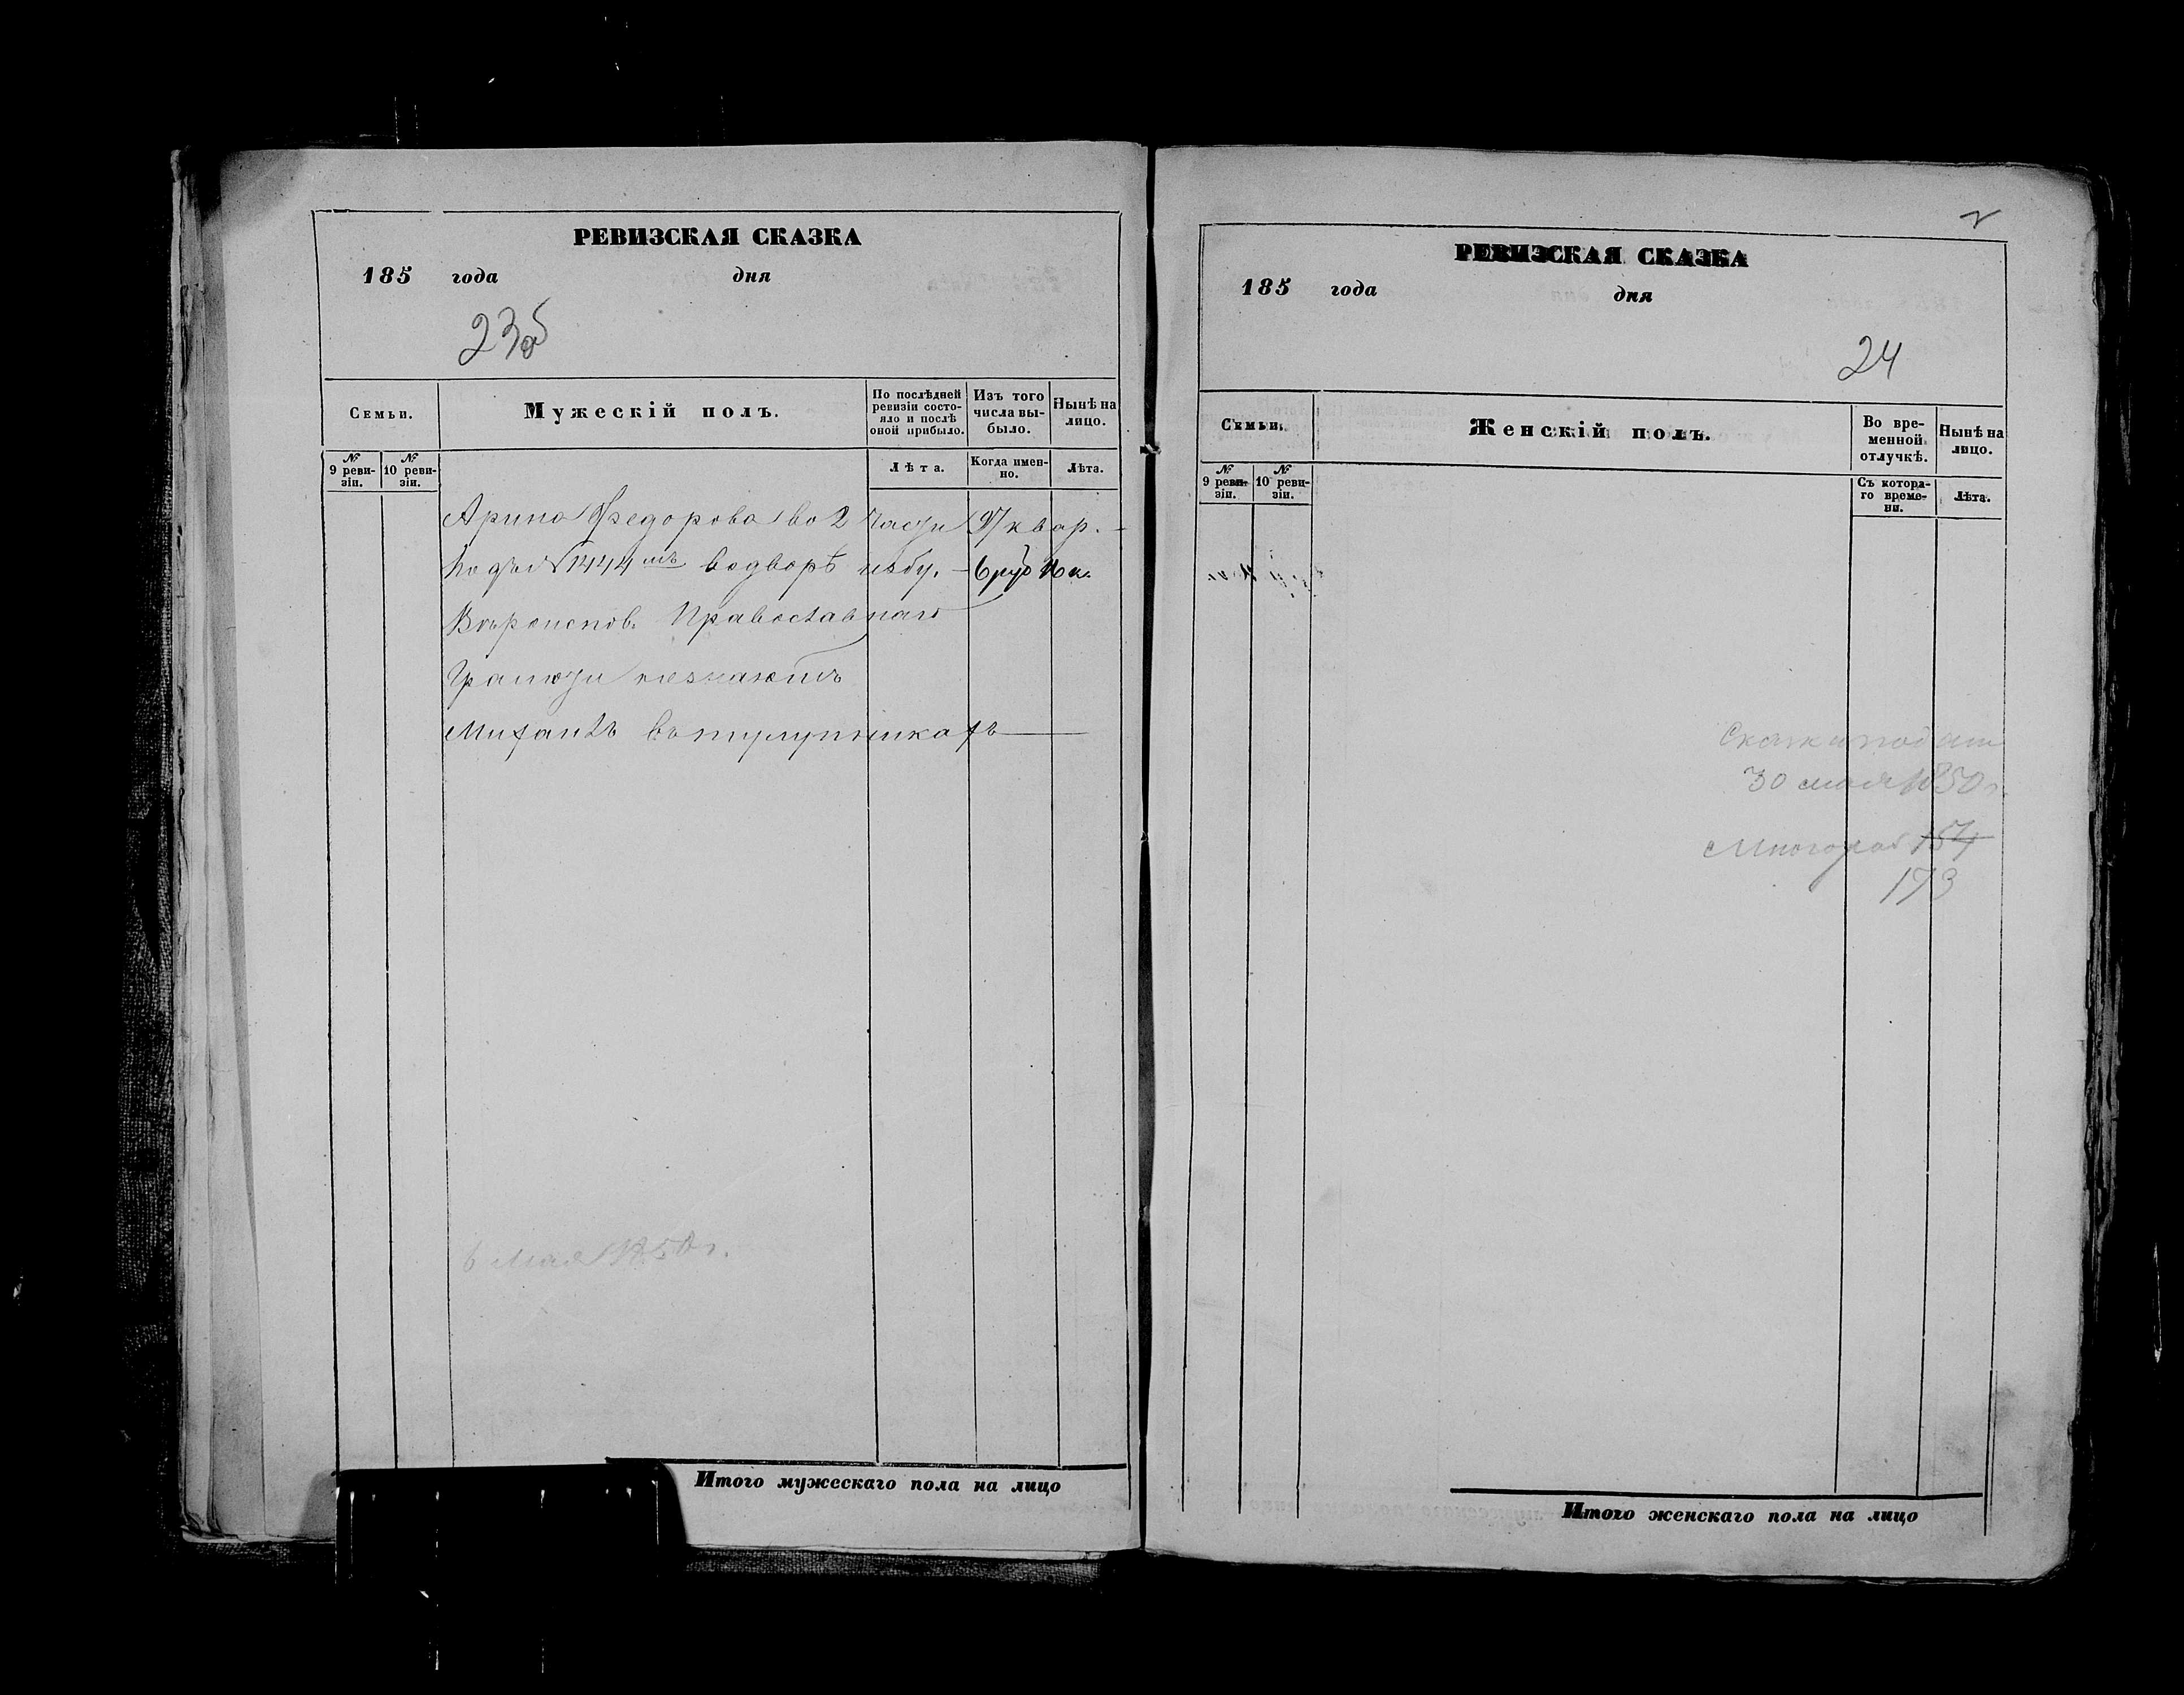 РЕВИЗСКАЯ СКАЗКА
185 года дня
23об
Семьи.
Мужескій полъ.
По послѣдней ревизіи состояло и послѣ оной прибыло.
Изъ того числа выбыло.
Нынѣ на лицо.
№ 9 ревизіи.
№ 10 ревизіи.
Лѣта.
Когда именно.
Лѣта.
Арина Федорова во 2 части 97 квар.
подъ № 1444мъ водворѣ избу. — 6 руб
Вѣроисповѣ. Православнаго
Грамоти незнаютъ
Михаилъ въ
6 Мая 1850 г.
Итого мужескаго пола на лицо
2
РЕВИЗСКАЯ СКАЗКА
185 года дня
24
Семьи.
Женскій полъ.
Во временной отлучкѣ.
Нынѣ на лицо.
№ 9 ревизіи.
№ 10 ревизіи.
Съ котораго времени.
Лѣта.
30 мая 1850 г.
154
193
Итого женскаго пола на лицо